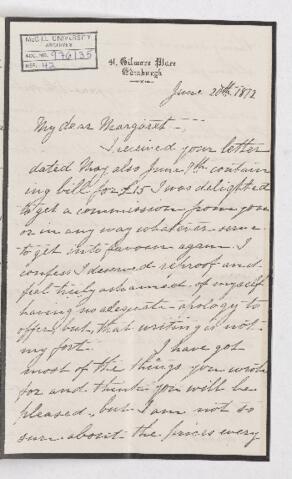 McGILL UNIVERSITY
ARCHIVES
ACC. NO. 976/35
REF. 42
41, Gilmore Place
Edinburgh
June 20th 1872
My dear Margaret —
I received your letter
dated May, also June 7th contain
ing bill for £15 I was delighted
to get a commission from you
or in any way whatever
to get into favour again. I
confess I deserved reproof and
feel truly ashamed of myself
having no adequate apology to
offer, but, that writing is not
my fort. I have got
most of the things you wrote
for and think you will be
pleased, but I am not so
sure about the prices every